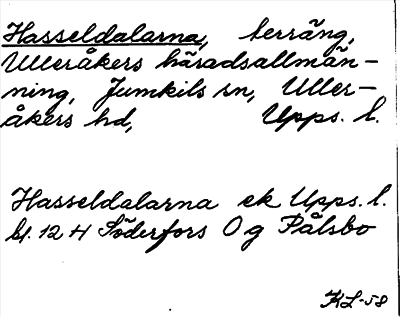 Hasseldalarna, terräng,
Ulleråkers häradsallmän-
ning, Jumkils sn, Uller-
åkers hd, Upps. l.
Hasseldalarna ek Upps. l.
bl. 12 H Söderfors Og Pålsbo
KL-58